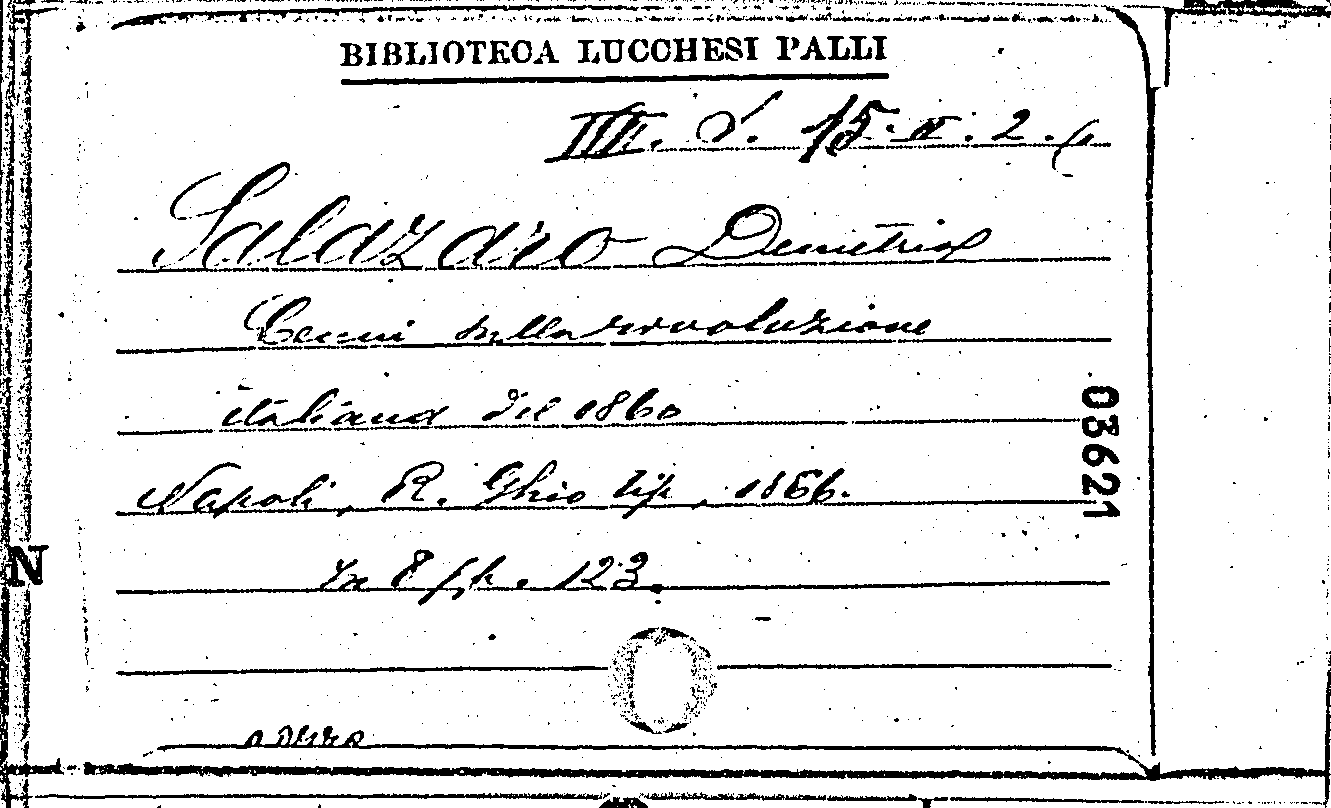 BIBLIOTECA LUCCHESI PALLI
III. 15. II. 2.
Salazaro Demetrio
Cenni sulla rivoluzione
italiana del 1860
Napoli, R. Ghio tip, 1866.
In 8 pp. 123.
03621
N